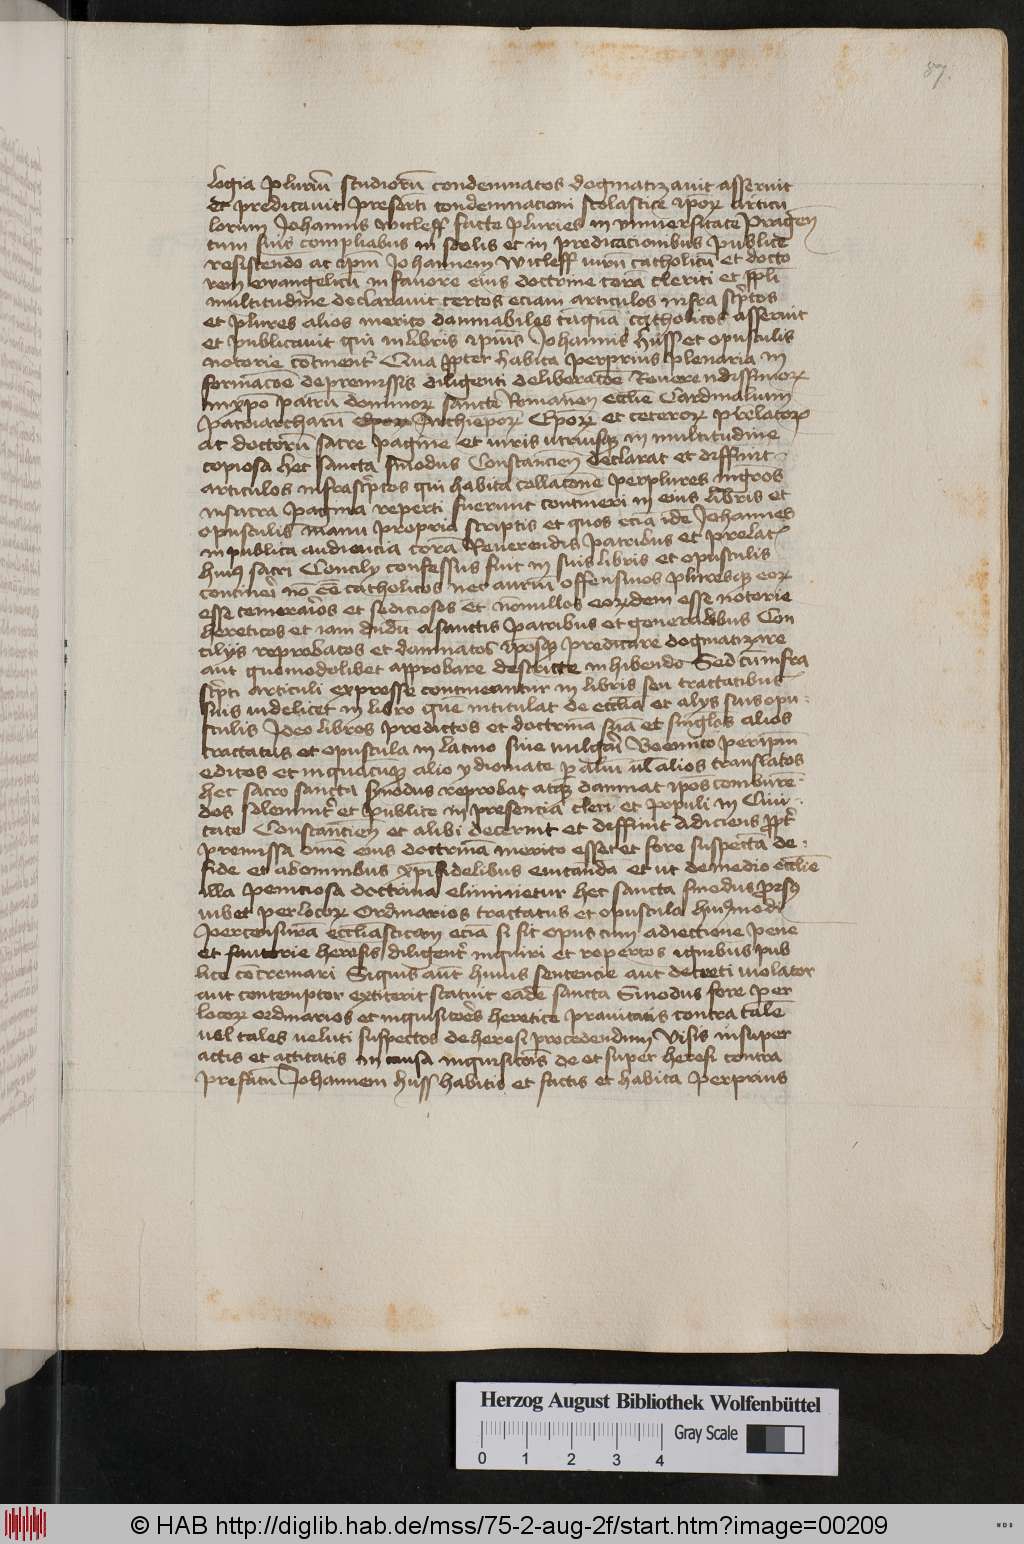 87.
logia pluriū studiorū condemnatos dogmatizauit asseruit
et predicauit presertī condemnacioni scolastice ipoꝝ articu
lorum Johannis wicleff facte pluries in vniuersitate Pragen̄
cum suis complicibus in scolis et in predicacionibus publice
resistendo ac ipm̄ Johannem Wicleff virū catholicū et docto
rem ewangelicū in fauore eius doctrine corā cleri et ppłi
multitudine declarauit certos eciam articulos infra scp̄tos
et plures alios merito damnabiles tāquā catholicos asseruit
et publicauit qui in libris ipius Johannis Huss et opusculis
notorie cōtinent᷑ Qua ppter habita perprius plenaria in
formac̄oe de premissis diligenti deliberac̄oe Reuerendissimoꝝ
in xp̄o patrū dominoꝝ sancte Romanen̄ eccl̄ie Cardinalium
Patriarcharū Ep̄oꝝ Archiep̄oꝝ Ep̄oꝝ et ceteroꝝ prelatoꝝ
ac doctorū sacre pagine et iuris vtriusqꝫ in multitudine
copiosa hec sancta sinodus Constancien̄ declarat et diffinit
articulos infrascp̄tos qui habita collac̄one perplures mgr̄os
in sacra pagina reperti fuerunt contineri in eius libris et
opusculis manu propria scriptis et quos eciā idē Johannes
in publica audiencia corā Reuerendis patribus et prelat᷑
huiꝰ sacri Concily confessus fuit in suis libris et opusculis
contineri nō eē catholicos nec aurim offensiuos pluresqꝫ eoꝝ
esse temerarios et sediciosos et nōnullos eoꝝdem esse notorie
hereticos et iam dudū a sanctis patribus et generalibus Con
cilys reprobatos et damnatos ip̄osqꝫ predicare dogmatizare
aut quomodolibet approbare districte inhibendo Sed cū infra
scp̄ti articuli expresse contineantur in libris seu tractatibus
suis videlicet in libro quē intitulat de eccl̄ia et alys suis opu
sculis Ideo libros predictos et doctrinā suā et singlos alios
tractatus et opuscula in latino siue vulgari Boemico per ipm̄
editos et in quacūqꝫ alio ydiomate p aliū vl alios translatos
hec sacro sancta sinodus reprobat atqꝫ damnat ipos comburē
dos solemnit᷑ et publice in presencia cleri et populi in Ciui
tate Constancien̄ et alibi decernit et diffinit Adiciens ppt᷑
premissa omē eius doctrinā merito esse et fore suspectā de
fide et ab omnibus xp̄ifidelibus euitandā et ut de medio eccl̄ie
illa perniciosa doctrina eliminetur hec sancta sinodus prorsꝰ
iubet per locoꝝ Ordinarios tractatus et opuscula huiꝰmodi
per censurā eccl̄iasticam eciā si sit opus cum adiectione pene
et fautorie heresis diligent᷑ inquiri et repertos ignibus pub
lice cōcremari Siquis aūt huius sentencie aut decreti violator
aut contemptor extiterit statuit eadē sancta Sinodus fore per
locoꝝ ordinarios et inquisitores heretice prauitatis contra talē
vel tales veluti suspectos de heresi procedendum Visis insuper
actis et actitatis in causa inquisic̄ois de et super heresi contra
prefatū Johannem Huss habitis et factis et habita perprius
Herzog August Bibliothek Wolfenbüttel
0 1 2 3 4 Gray Scale
© HAB http://diglib.hab.de/mss/75-2-aug-2f/start.htm?image=00209